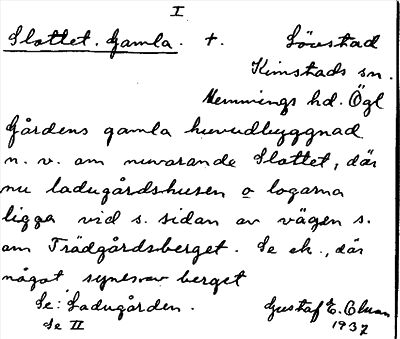 I
Slottet. Gamla. +. Lövstad
Kimstads sn.
Memmings hd. Ögl
Gårdens gamla huvudbyggnad
n. v. om nuvarande Slottet, där
nu ladugårdshusen o logarna
ligga vid s. sidan av vägen s.
om Trädgårdsberget. Se ek., där
något synes av berget
Se: Ladugården. Gustaf E. Olsson
Se II 1937